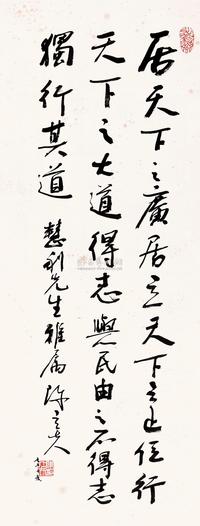 居天下之廣居立天下之正位行
天下之大道得志與民由之不得志
獨行其道 慧利先生雅屬 陳立夫